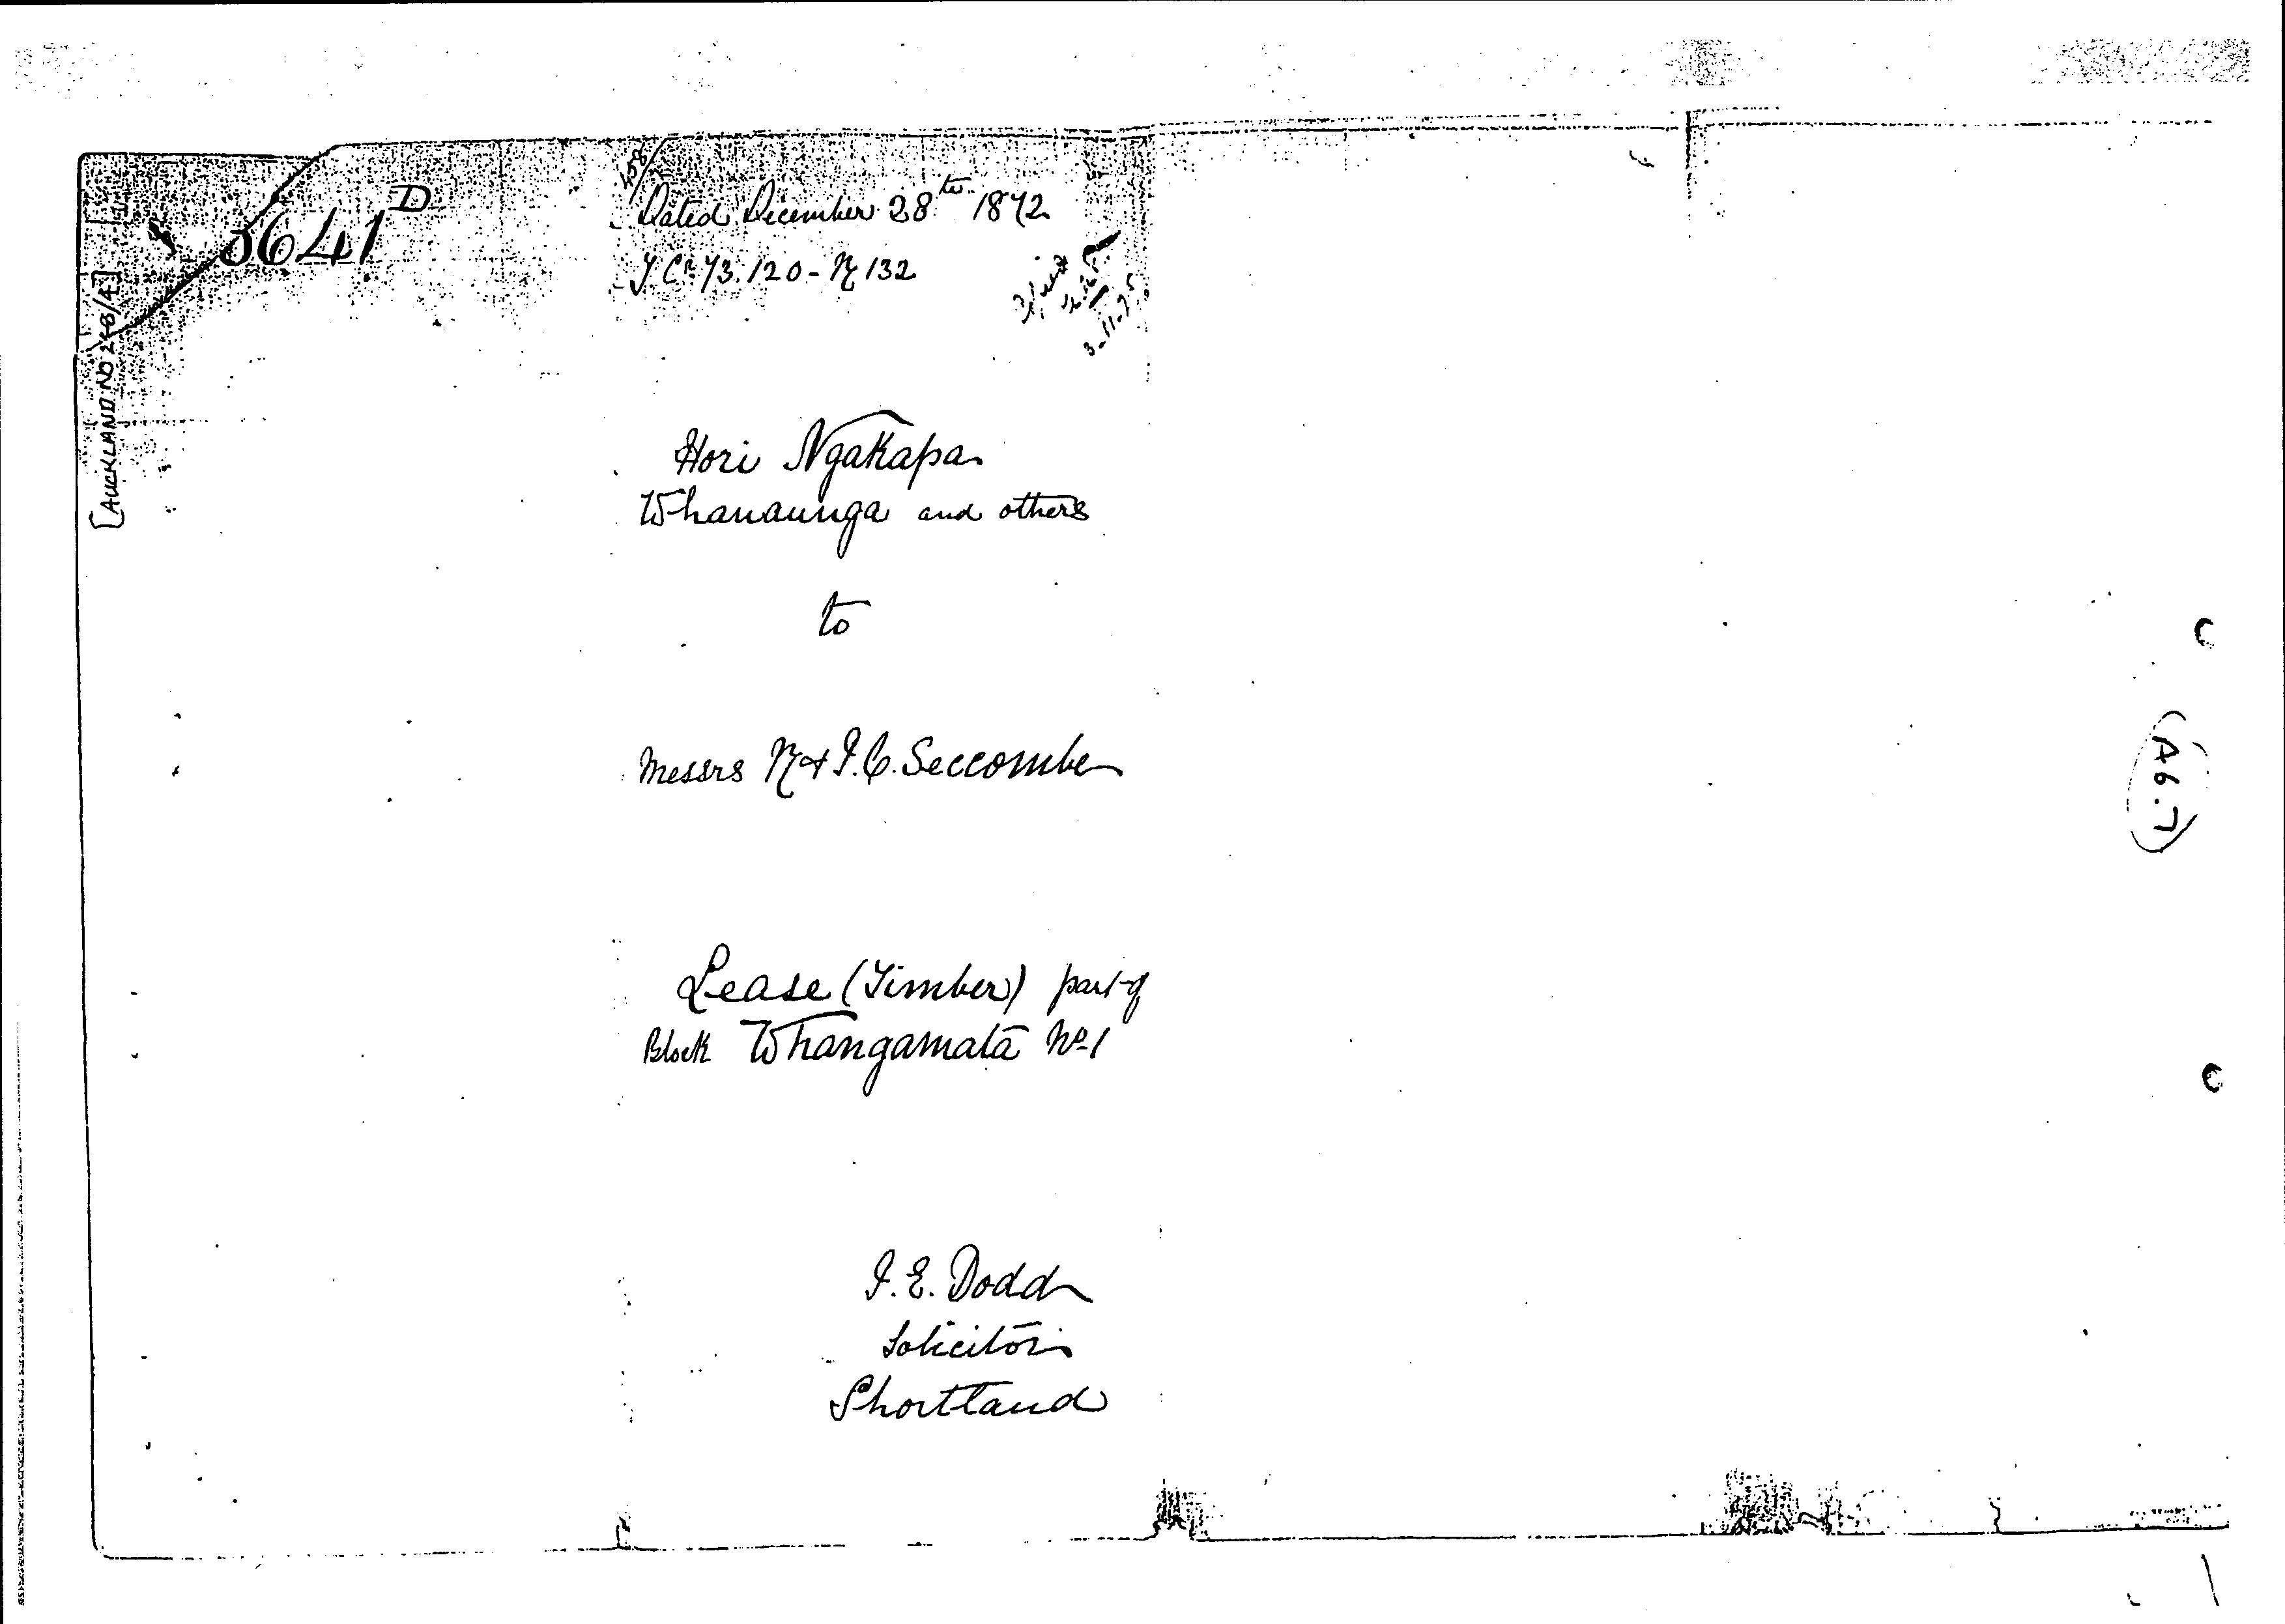 3641 D
[AUCKLAND NO 248/4]
Dated December 28th 1872
T.C. 73.120 - N 132
3-11-75
Hori Ngakapa
Whanaunga and others
to
Messrs & J.C. Seccombe
Lease (Timber) part of
Block Whangamata No. 1
J.E. Dodd
Solicitor
Shortland
(A6.7)